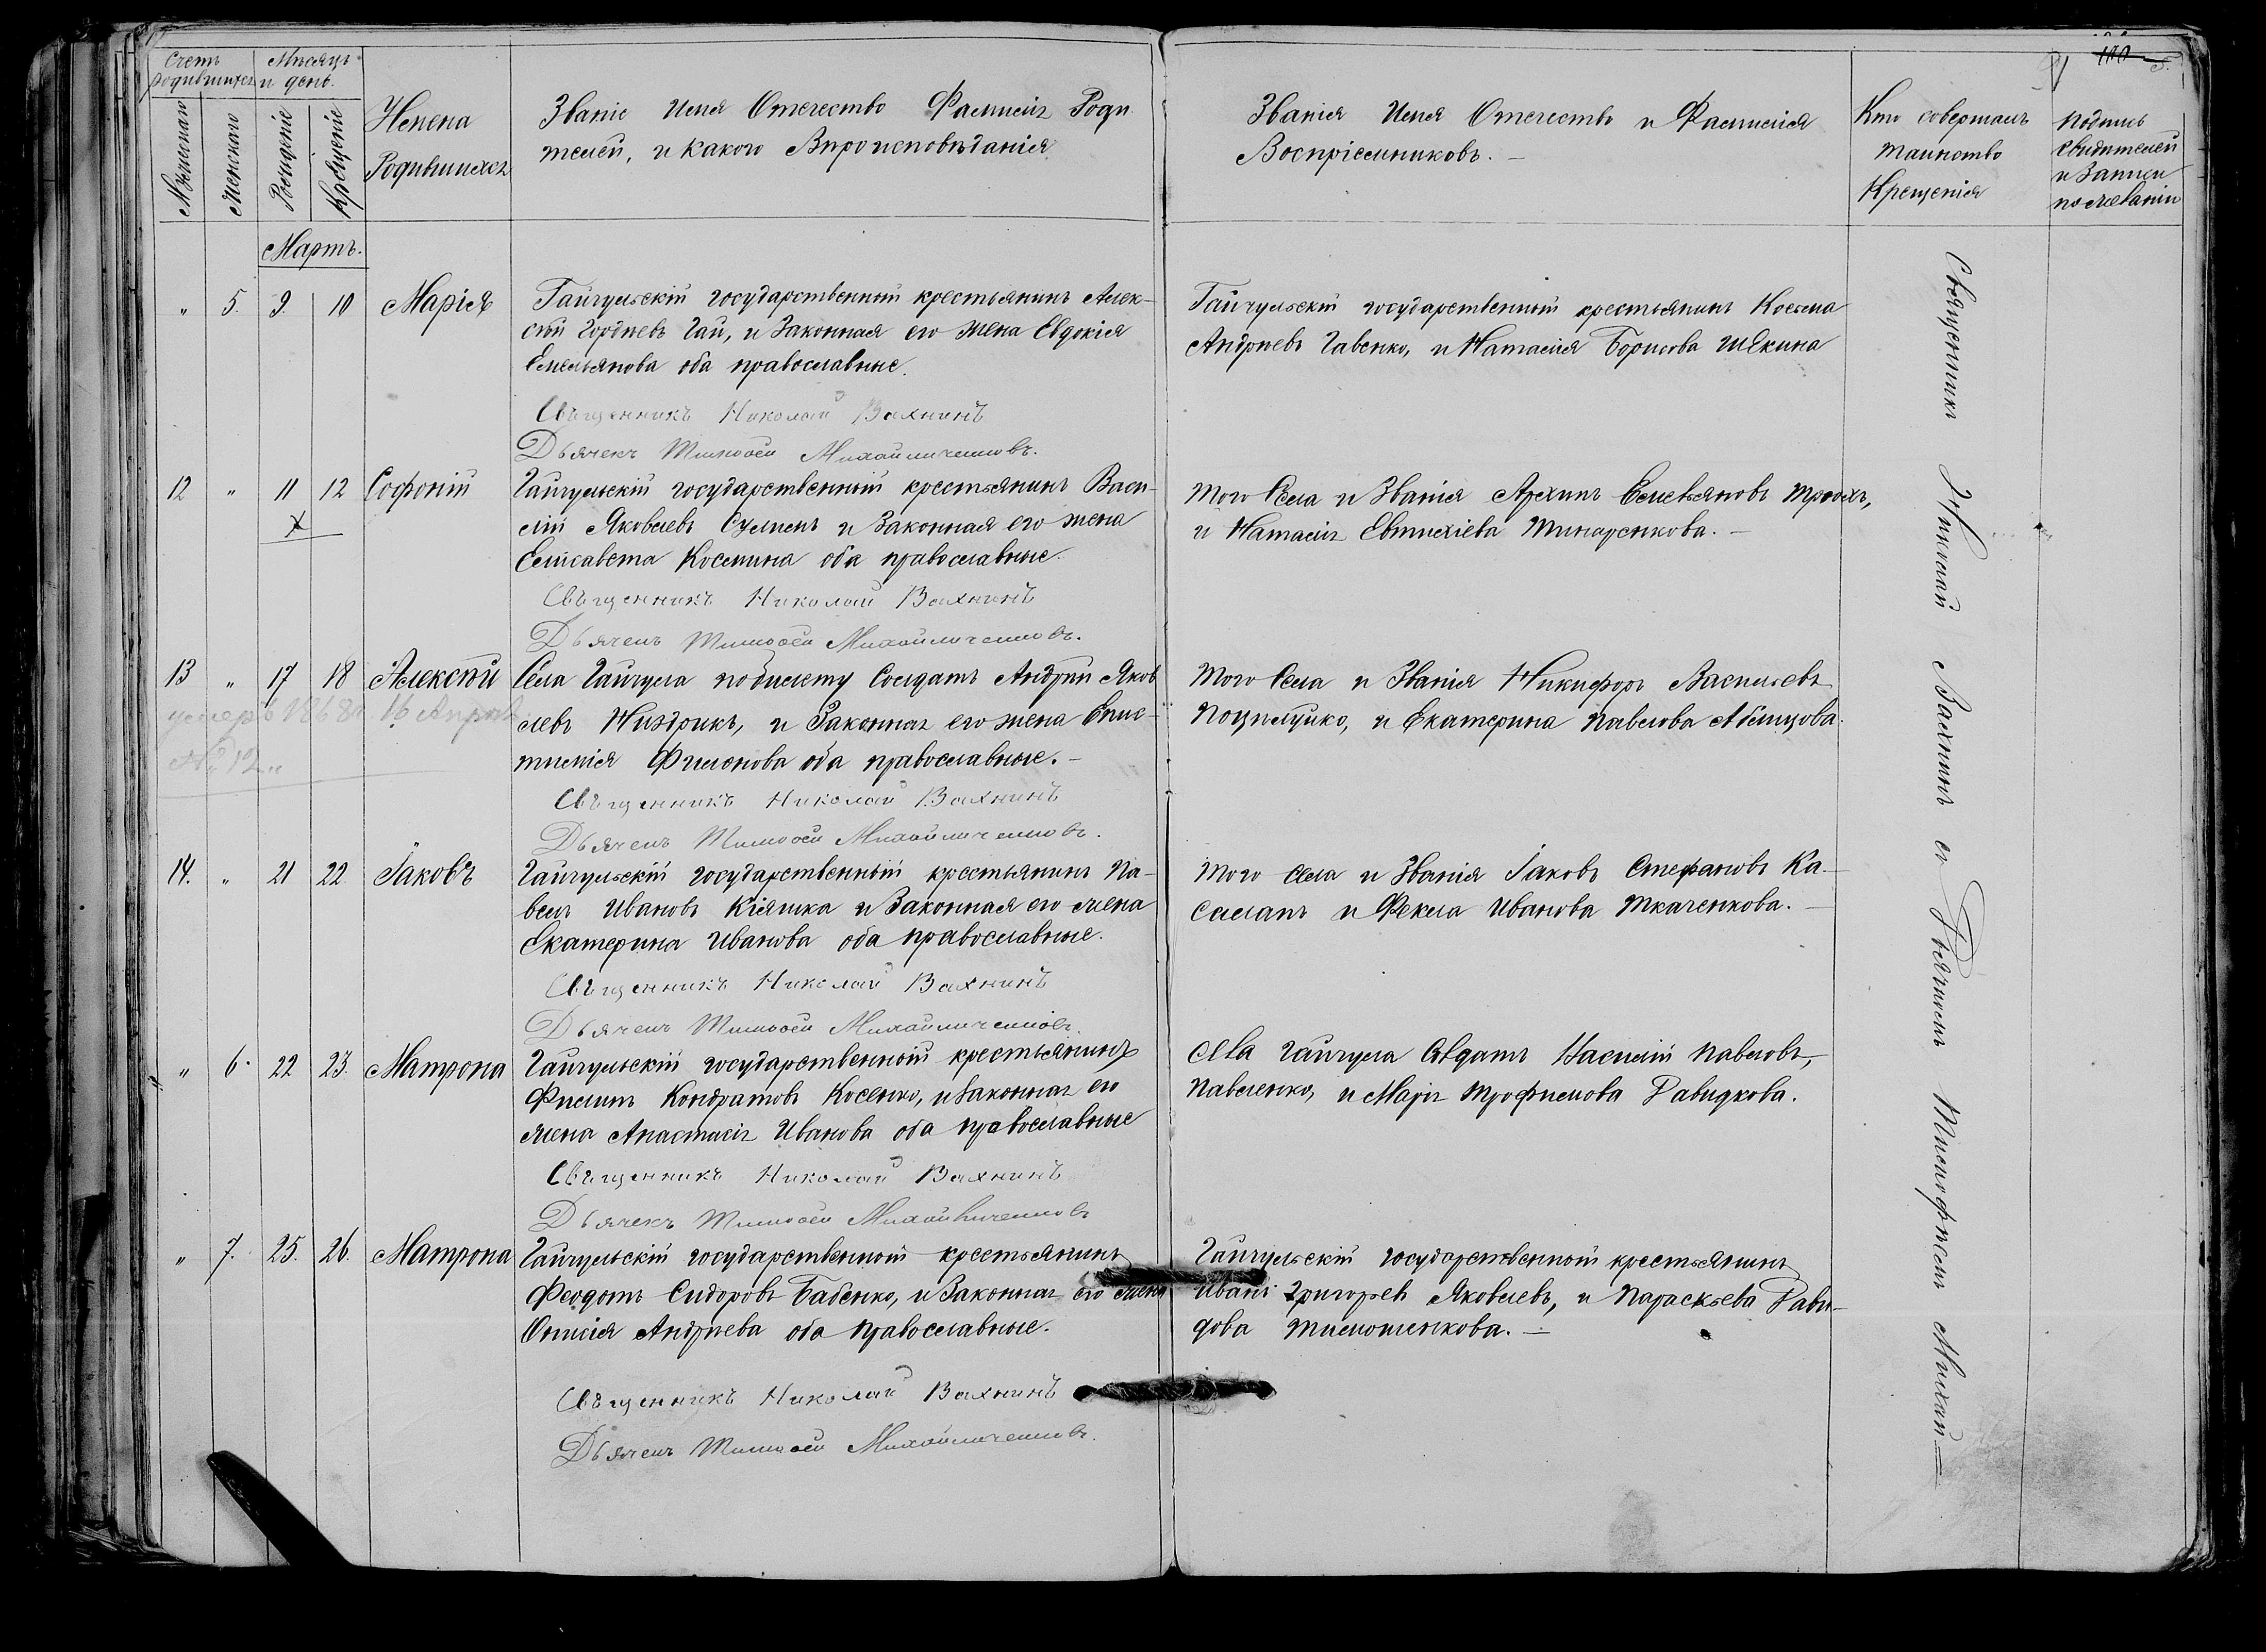 Счетъ родившихся
Мѣсяцъ и день.
Мужескаго
Женскаго
Рожденіе
Крещеніе
Имена
Родившихся
Званіе Имя Отечество Фамилія Роди
телей, и какого Вѣроисповѣданія
Званія Имя Отечество и Фамилія
Воспріемниковъ. –
Кто совершалъ
таинство
Крещенія
Подпись
свидѣтелей
и Записи
по желанію
100
Мартъ.
„ 5. 9. 10 Марія
Гайчульскій государственный крестьянинъ Алек-
сѣй Гордѣевъ Гай, и Законная его жена Евдокія
Емельянова оба православные.
Священникъ Николай Вахнинъ
Дьячекъ Тимофей Михайличенковъ.
Гайчульскій государственный крестьянинъ Косьма
Андреевъ Гавенко, и Наталія Борисова
12 „ 11 12 Софоній
Гайчульскій государственный крестьянинъ Васи-
лій Яковлевъ и Законная его жена
Елисавета Космина оба православные.
Священникъ Николай Вахнинъ
Дьячекъ Тимофей Михайличенковъ.
Того Села и Званія Архипъ Емельяновъ
и Наталія Евтихіева
13 „ 17 18 Алексѣй
умеръ 1868 г. 16 Апрѣля
№ 12 „
Села Гайчула по билету Солдатъ Андрей Яков
левъ Низдрикъ, и Законная его жена Епис-
тимія Филонова оба православные. –
Священникъ Николай Вахнинъ
Дьячекъ Тимофей Михайличенковъ.
Того Села и Званія Никифоръ Васильевъ
и Екатерина Павлова
14. „ 21 22 Іаковъ
Гайчульскій государственный крестьянинъ Па-
велъ Ивановъ Кіяшка и Законная его жена
Екатерина Иванова оба православные.
Священникъ Николай Вахнинъ
Дьячекъ Тимофей Михайличенковъ.
Того Села и Званія Іаковъ Стефановъ Ка-
сапанъ и Фекла Иванова Ткаченкова. –
„ 6. 22 23. Матрона
Гайчульскій государственный крестьянинъ
Филипъ Кондратовъ Косенко, и Законная его
жена Анастасія Иванова оба православные
Священникъ Николай Вахнинъ
Дьячекъ Тимофей Михайличенковъ
села Гайчула Солдатъ Василій Павловъ,
Павленко, и Марія Трофимова Давидкова.
„ 7. 25. 26. Матрона
Гайчульскій государственный крестьянинъ
Феодотъ Сидоровъ Бабенко, и Законная его жена
Андреева оба православные.
Священникъ Николай Вахнинъ
Дьячекъ Тимофей Михайличенковъ.
Гайчульскій государственный крестьянинъ
Иванъ Григорьев Яковлевъ, и Параскева Дави-
дова Тимошенкова. –
Священникъ Николай Вахнинъ съ Дьячкомъ Тимофѣемъ Михай=